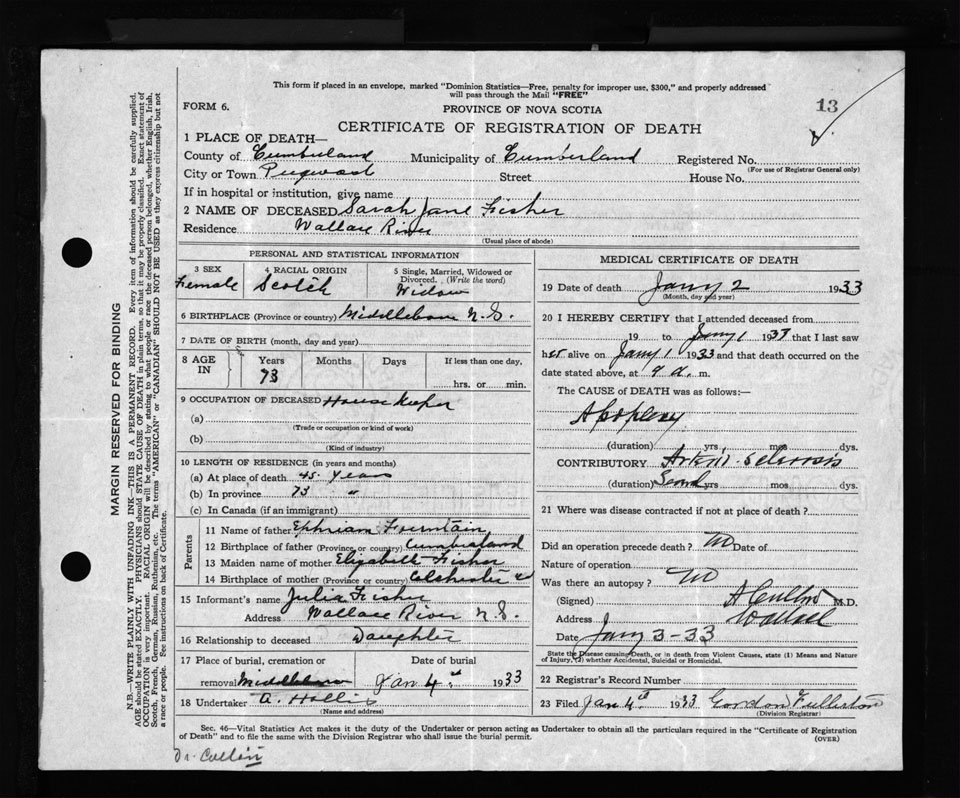 This form if placed in an envelope, marked "Dominion Statistics—Free, penalty for improper use, $300," and properly addressed
will pass through the Mail "FREE"
FORM 6.
PROVINCE OF NOVA SCOTIA
13
CERTIFICATE OF REGISTRATION OF DEATH
1 PLACE OF DEATH—
County of Cumberland Municipality of Cumberland Registered No.
(For use of Registrar General only)
City or Town Street House No.
If in hospital or institution, give name
2 NAME OF DECEASED Sarah Jane Fisher
Residence Wallace River
(Usual place of abode)
PERSONAL AND STATISTICAL INFORMATION
3 SEX 4 RACIAL ORIGIN 5 Single, Married, Widowed or Divorced. (Write the word)
Female Scotch Widow
6 BIRTHPLACE (Province or country) N.S.
7 DATE OF BIRTH (month, day and year)
8 AGE IN Years Months Days If less than one day,
73 hrs. or min.
9 OCCUPATION OF DECEASED House Keeper
(a)
(Trade or occupation or kind of work)
(b)
(Kind of industry)
10 LENGTH OF RESIDENCE (in years and months)
(a) At place of death 45 Years
(b) In province 73 "
(c) In Canada (if an immigrant)
Parents
11 Name of father Ephriam Fountain
12 Birthplace of father (Province or country) Cumberland
13 Maiden name of mother Fisher
14 Birthplace of mother (Province or country) Colchester
15 Informant's name Julia Fisher
Address Wallace River N.S.
16 Relationship to deceased Daughter
17 Place of burial, cremation or removal Date of burial
Jan 4th 1933
18 Undertaker A. Hollis
(Name and address)
MEDICAL CERTIFICATE OF DEATH
19 Date of death Jany 2 1933
(Month, day and year)
20 I HEREBY CERTIFY that I attended deceased from
19 to Jany 1 1933 that I last saw
her alive on Jany 1 1933 and that death occurred on
date stated above, at 9 a. m.
The CAUSE OF DEATH was as follows:—
Apoplexy
(duration) yrs. mos. dys.
CONTRIBUTORY Arterio-Sclerosis
(duration) yrs mos dys.
21 Where was disease contracted if not at place of death?
Did an operation precede death? no Date of
Nature of operation
Was there an autopsy? no
(Signed) M.D.
Address Wallace
Date Jany 3-33
State the Disease causing Death, or in death from Violent Causes, state (1) Means and Nature
of Injury, (2) whether Accidental, Suicidal or Homicidal.
22 Registrar's Record Number
23 Filed Jan 4th 1933 Gordon Fullerton
(Division Registrar)
Sec. 46—Vital Statistics Act makes it the duty of the Undertaker or person acting as Undertaker to obtain all the particulars required in the "Certificate of Registration
of Death" and to file the same with the Division Registrar who shall issue the burial permit.
(OVER)
MARGIN RESERVED FOR BINDING
N.B.—WRITE PLAINLY WITH UNFADING INK—THIS IS A PERMANENT RECORD. Every item of information should be carefully supplied.
AGE should be stated EXACTLY. PHYSICIANS should STATE CAUSE OF DEATH in plain terms, so that it may be properly classified. Exact statement of
OCCUPATION is very important. RACIAL ORIGIN will be described by stating to what people or race the deceased person belonged, whether English, Irish,
Scotch, French, German, Russian, Ruthenian, etc. The terms "AMERICAN" or "CANADIAN" SHOULD NOT BE USED as they express citizenship but not
a race or people. See instructions on back of Certificate.